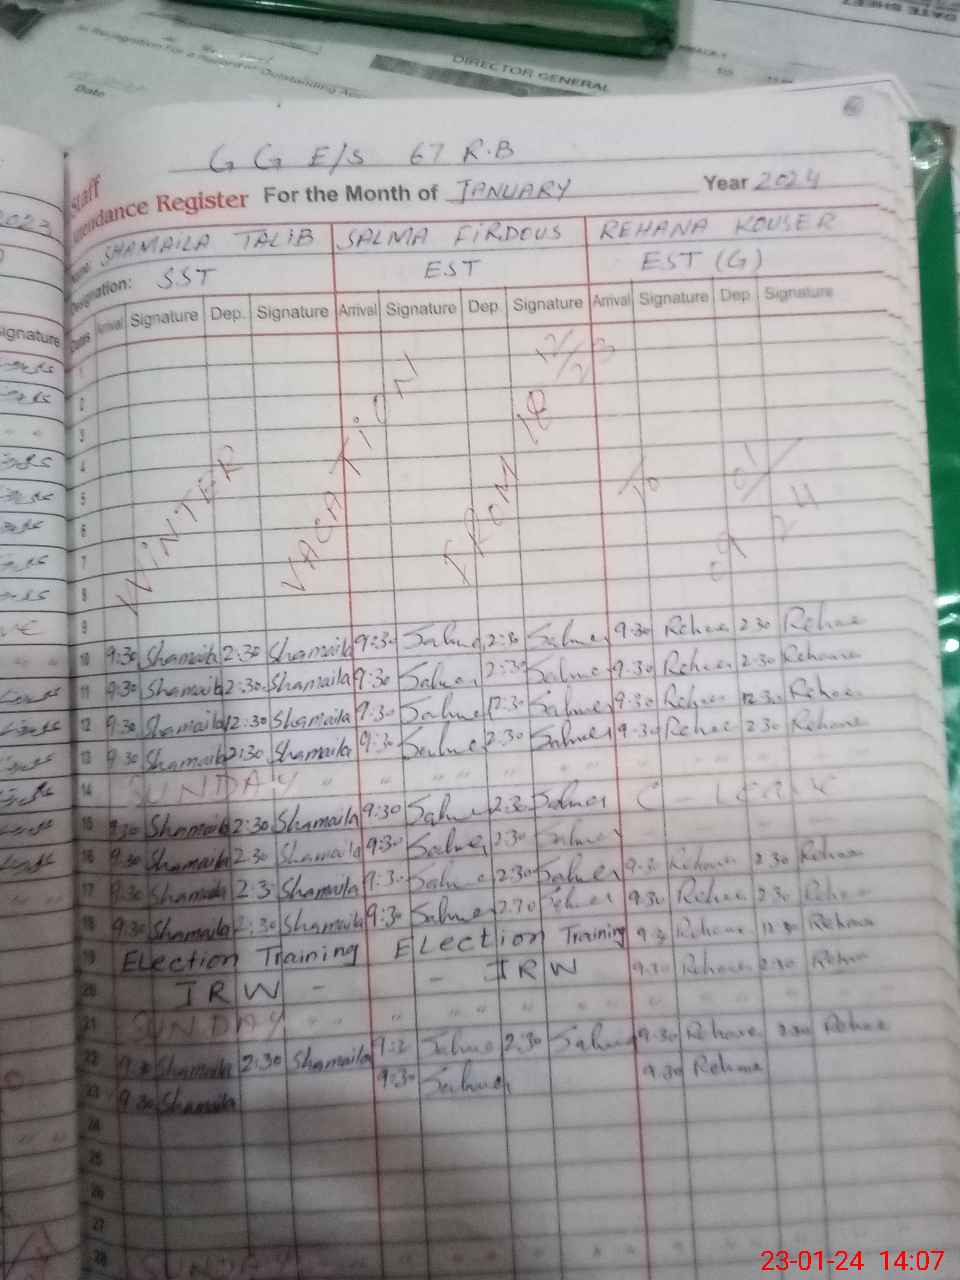 DATE SHEET
DIRECTOR GENERAL
in Recognition For a
Outstanding
Date
G G E/S 67 R.B
Staff
Attendance Register For the Month of JANUARY Year 2024
2023
Name: SHAMAILA TALIB SALMA FIRDOUS REHANA KOUSER
Designation: SST EST EST (G)
Signature
Dates Arrival Signature Dep. Signature Arrival Signature Dep. Signature Arrival Signature Dep. Signature
1
2
3
4
5
6
7
8
WINTER VACATION FROM 18/12/23 To 09/01/24
9
10 9:30 Shamaila 2:30 Shamaila 9:30 Salma 2:30 Salma 9:30 Rehana 2:30 Rehana
11 9:30 Shamaila 2:30 Shamaila 9:30 Salma 2:30 Salma 9:30 Rehana 2:30 Rehana
12 9:30 Shamaila 12:30 Shamaila 9:30 Salma 12:30 Salma 9:30 Rehana 12:30 Rehana
13 9:30 Shamaila 2:30 Shamaila 9:30 Salma 2:30 Salma 9:30 Rehana 2:30 Rehana
14 SUNDAY " " " " " " " " "
15 9:30 Shamaila 2:30 Shamaila 9:30 Salma 2:30 Salma C - Leave
16 9:30 Shamaila 2:30 Shamaila 9:30 Salma 2:30 Salma 9:30 Rehana 2:30 Rehana
17 9:30 Shamaila 2:30 Shamaila 9:30 Salma 2:30 Salma 9:30 Rehana 2:30 Rehana
18 9:30 Shamaila 2:30 Shamaila 9:30 Salma 2:30 Salma 9:30 Rehana 12:30 Rehana
19 ELection Training ELection Training 9:30 Rehana 2:30 Rehana
20 IRW - - IRW
21 SUNDAY " " " " " " " " "
22 9:30 Shamaila 2:30 Shamaila 9:30 Salma 2:30 Salma 9:30 Rehana 2:30 Rehana
23 9:30 Shamaila 9:30 Salma 9:30 Rehana
24
25
26
27
28 SUNDAY
23-01-24 14:07